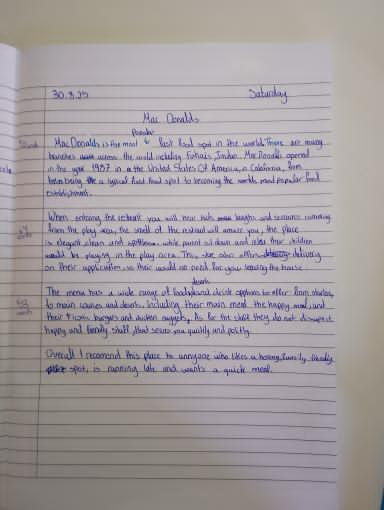 30.8.25 Saturday
Mac Donalds
Popular
MacDonalds is the most fast food spot in the world. There are many
branches across the world including Fuhais, Jordan. MacDonalds opened
in the year 1937 in the United States Of America, in California, from
been being a typical fast food spot to becoming the worlds most popular food
establishment.
When entering the you will hear kids laughs and screams comming
from the play area, the smell of the will amaze you, the place
is elegant clean and spotless, while parent sit down and relax their children
would be playing in the play area. This also offers delivery
on their application, so their would no need for you leaving the house
The menu has a wide range of food and drink options to offer from starters,
to main courses and deserts, including their main meal the happy meal, and
their burgers and chicken nuggets, As for the staff they do not disrespect
happy and friendly staff, that serves you quickly and politly.
Overall I recomend this place to annyone who likes a family friendly
spot, is running late and wants a quick meal.